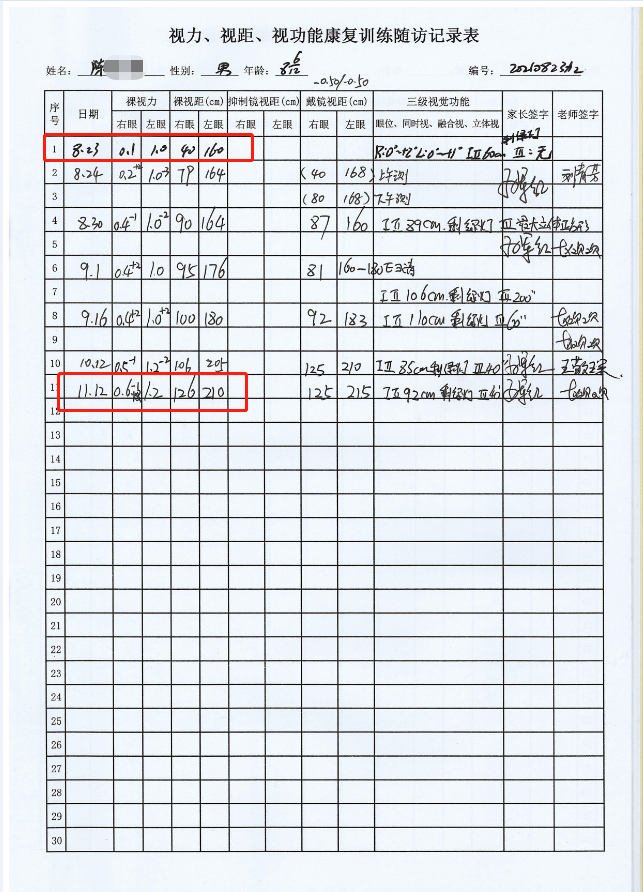 视力、视距、视功能康复训练随访记录表
姓名：陈 性别：男 年龄：8 6/12 编号：
-0.50/-0.50
序号 日期 裸视力 裸视距(cm) 抑制镜视距(cm) 戴镜视距(cm) 三级视觉功能 家长签字 老师签字
右眼 左眼 右眼 左眼 右眼 左眼 右眼 左眼 眼位、同时视、融合视、立体视
1 8.23 0.1 1.0 40 160 60cm III：无
2 8.24 0.2 1.0 79 164 (40 168) 上午测
3 (80 168) 下午测
4 8.30 0.4⁻¹ 1.0⁻² 90 164 87 160 I II 89cm 剩绿灯 III
5
6 9.1 0.4⁺² 1.0 95 176 81 160-180
7 I II 106cm 剩绿灯 III 200"
8 9.16 0.4⁺² 1.0⁺² 100 180 92 183 I II 110cm 剩绿灯 III 60"
9
10 10.12 0.5⁻¹ 1.2⁻² 106 205 125 210 I II 85cm 剩绿灯 III 40"
11 11.12 0.6 1.2 126 210 125 215 I II 92cm 剩绿灯 III
12
13
14
15
16
17
18
19
20
21
22
23
24
25
26
27
28
29
30